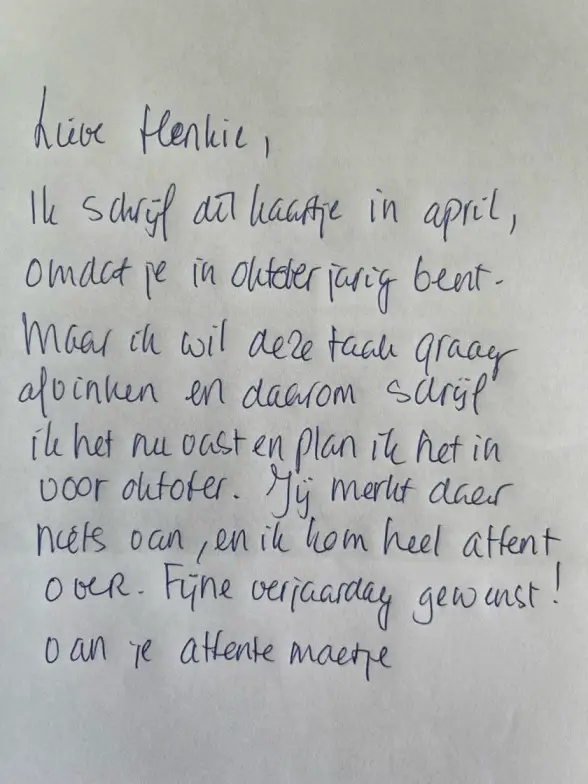 Lieve Henkie,
Ik schrijf dit kaartje in april,
omdat je in oktober jarig bent.
Maar ik wil deze taak graag
afvinken en daarom schrijf
ik het nu vast en plan ik het in
voor oktober. Jij merkt daar
niets van, en ik kom heel attent
over. Fijne verjaardag gewenst!
van je attente maatje